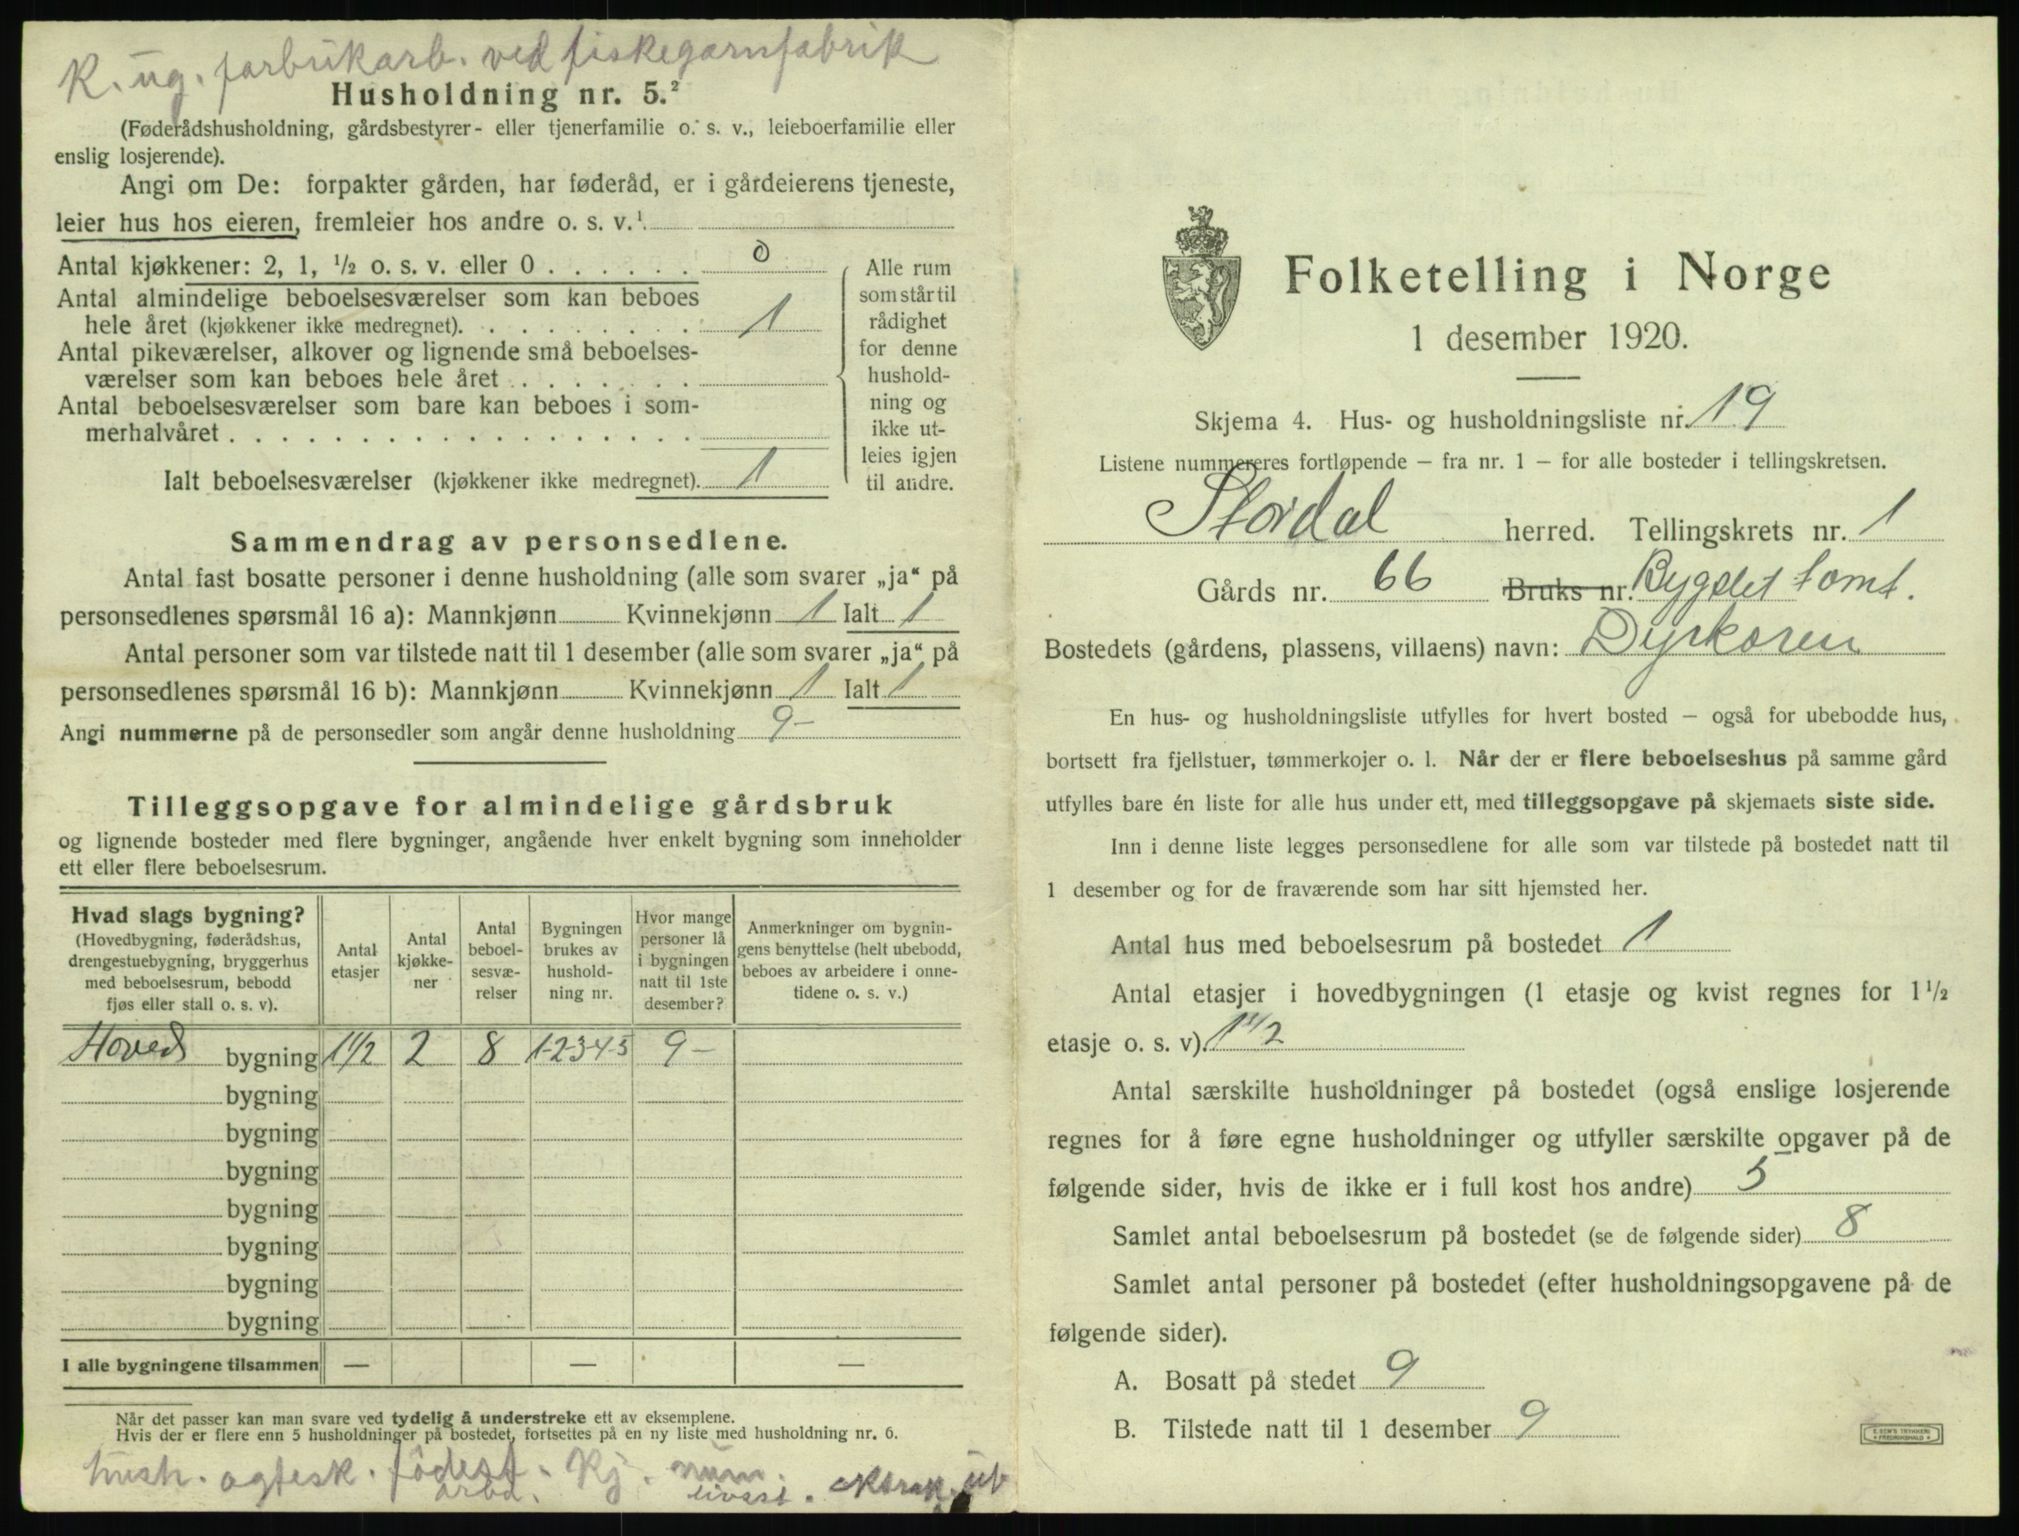 K. ug. farbrikarb. ved fiskegarnfabrik
Husholdning nr. 5.²
(Føderådshusholdning, gårdsbestyrer- eller tjenerfamilie o. s. v., leieboerfamilie eller
enslig losjerende).
Angi om De: forpakter gården, har føderåd, er i gårdeierens tjeneste,
leier hus hos eieren, fremleier hos andre o. s. v.¹
Antal kjøkkener: 2, 1, ½ o. s. v. eller 0 . . . . . . 0
Antal almindelige beboelsesværelser som kan beboes
hele året (kjøkkener ikke medregnet). . . . . . . . . 1
Antal pikeværelser, alkover og lignende små beboelses-
værelser som kan beboes hele året . . . . . . .
Antal beboelsesværelser som bare kan beboes i som-
merhalvåret . . . . . . . . . . . . . . . . . .
Ialt beboelsesværelser (kjøkkener ikke medregnet). 1
Alle rum
som står til
rådighet
for denne
hushold-
ning og
ikke ut-
leies igjen
til andre.
Sammendrag av personsedlene.
Antal fast bosatte personer i denne husholdning (alle som svarer „ja“ på
personsedlenes spørsmål 16 a): Mannkjønn Kvinnekjønn 1 Ialt 1
Antal personer som var tilstede natt til 1 desember (alle som svarer „ja“ på
personsedlenes spørsmål 16 b): Mannkjønn Kvinnekjønn 1 Ialt 1
Angi nummerne på de personsedler som angår denne husholdning 9-
Tilleggsopgave for almindelige gårdsbruk
og lignende bosteder med flere bygninger, angående hver enkelt bygning som inneholder
ett eller flere beboelsesrum.
Hvad slags bygning?
(Hovedbygning, føderådshus,
drengestuebygning, bryggerhus
med beboelsesrum, bebodd
fjøs eller stall o. s. v).
Antal
etasjer
Antal
kjøkke-
ner
Antal
beboel-
sesvæ-
relser
Bygningen
brukes av
hushold-
ning nr.
Hvor mange
personer lå
i bygningen
natt til 1ste
desember?
Anmerkninger om bygnin-
gens benyttelse (helt ubebodd,
beboes av arbeidere i onne-
tidene o. s. v.)
Hoved bygning 1½ 2 8 1-2-3-4-5 9-
bygning
bygning
bygning
bygning
bygning
bygning
bygning
I alle bygningene tilsammen — — —
Når det passer kan man svare ved tydelig å understreke ett av eksemplene.
Hvis der er flere enn 5 husholdninger på bostedet, fortsettes på en ny liste med husholdning nr. 6.
Folketelling i Norge
1 desember 1920.
Skjema 4. Hus- og husholdningsliste nr. 19
Listene nummereres fortløpende – fra nr. 1 – for alle bosteder i tellingskretsen.
Stordal herred. Tellingskrets nr. 1
Gårds nr. 66 Bruks nr. Bygslet tomt.
Bostedets (gårdens, plassens, villaens) navn: Dyrkoren
En hus- og husholdningsliste utfylles for hvert bosted – også for ubebodde hus,
bortsett fra fjellstuer, tømmerkojer o. l. Når der er flere beboelseshus på samme gård
utfylles bare én liste for alle hus under ett, med tilleggsopgave på skjemaets siste side.
Inn i denne liste legges personsedlene for alle som var tilstede på bostedet natt til
1 desember og for de fraværende som har sitt hjemsted her.
Antal hus med beboelsesrum på bostedet 1
Antal etasjer i hovedbygningen (1 etasje og kvist regnes for 1½
etasje o. s. v). 1½
Antal særskilte husholdninger på bostedet (også enslige losjerende
regnes for å føre egne husholdninger og utfyller særskilte opgaver på de
følgende sider, hvis de ikke er i full kost hos andre) 5
Samlet antal beboelsesrum på bostedet (se de følgende sider) 8
Samlet antal personer på bostedet (efter husholdningsopgavene på de
følgende sider).
A. Bosatt på stedet 9
B. Tilstede natt til 1 desember 9
E. SEM'S TRYKKERI
FREDRIKSHALD